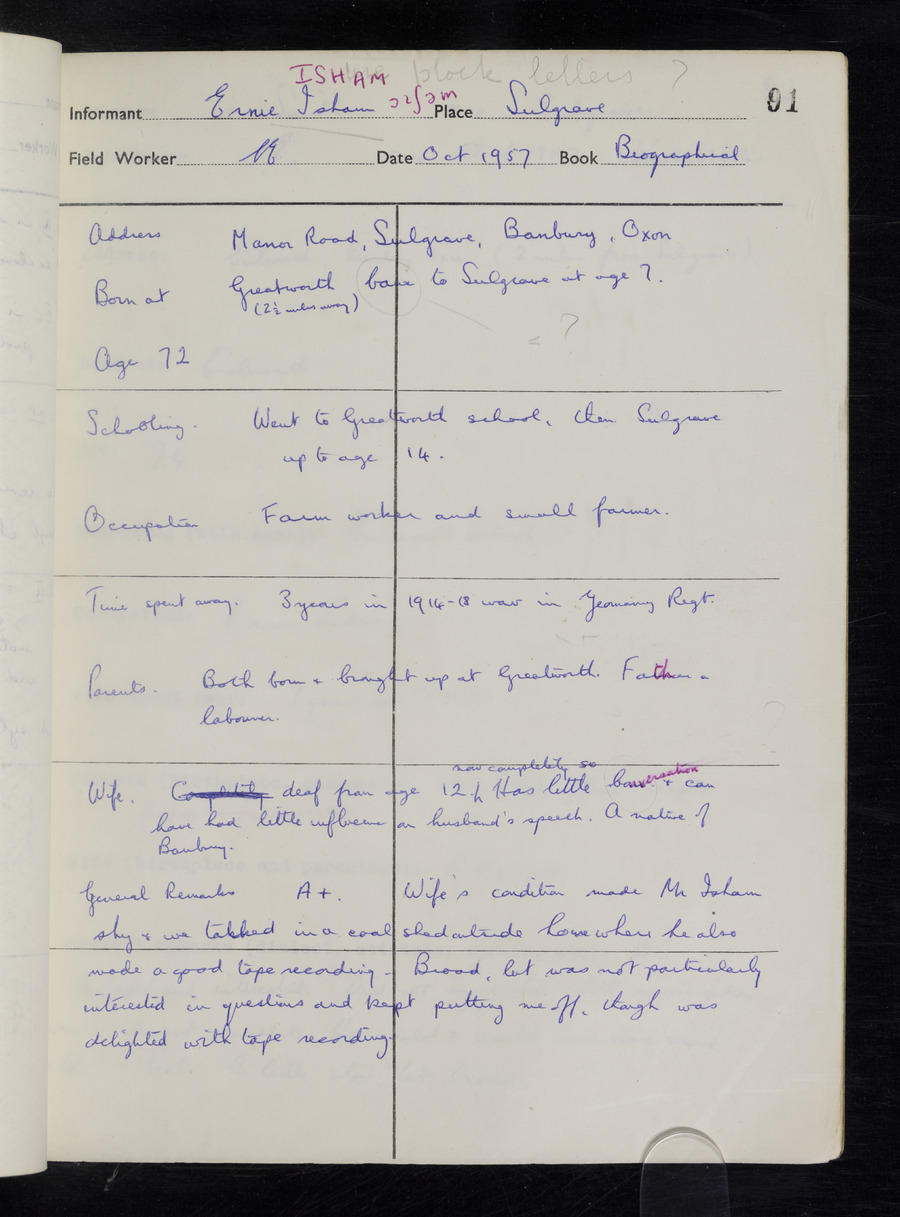 ISHAM block letters ?
Informant Ernie Isham Place Sulgrave 91
Field Worker Date Oct 1957 Book Biographical
Address Manor Road, Sulgrave, Banbury, Oxon
Born at Greatworth came to Sulgrave at age 7.
(2½ miles away)
?
Age 72
Schooling. Went to Greatworth school, then Sulgrave
up to age 14.
Occupation Farm worker and small farmer.
Time spent away. 3 years in 1914-18 war in Yeomanry Regt.
Parents. Both born + brought up at Greatworth. Father a
labourer.
now completely so
Wife. Completely deaf from age 12. Has little conversation + can
have had little influence on husband's speech. A native of
Banbury.
General Remarks A+. Wife's condition made Mr Isham
shy & we talked in a coal shed outside home where he also
made a good tape recording. Broad, but was not particularly
interested in questions and kept putting me off, though was
delighted with tape recording.